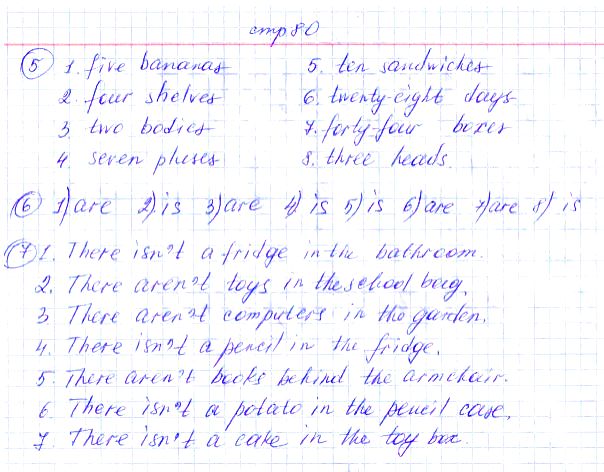 стр 80
5 1. five bananas 5. ten sandwiches
2. four shelves 6. twenty-eight days
3. two bodies 7. forty-four boxes
4. seven pluses 8. three heads.
6 1) are 2) is 3) are 4) is 5) is 6) are 7) are 8) is
7 1. There isn't a fridge in the bathroom.
2. There aren't toys in the school bag.
3. There aren't computers in the garden.
4. There isn't a pencil in the fridge.
5. There aren't books behind the armchair.
6. There isn't a potato in the pencil case.
7. There isn't a cake in the toy box.